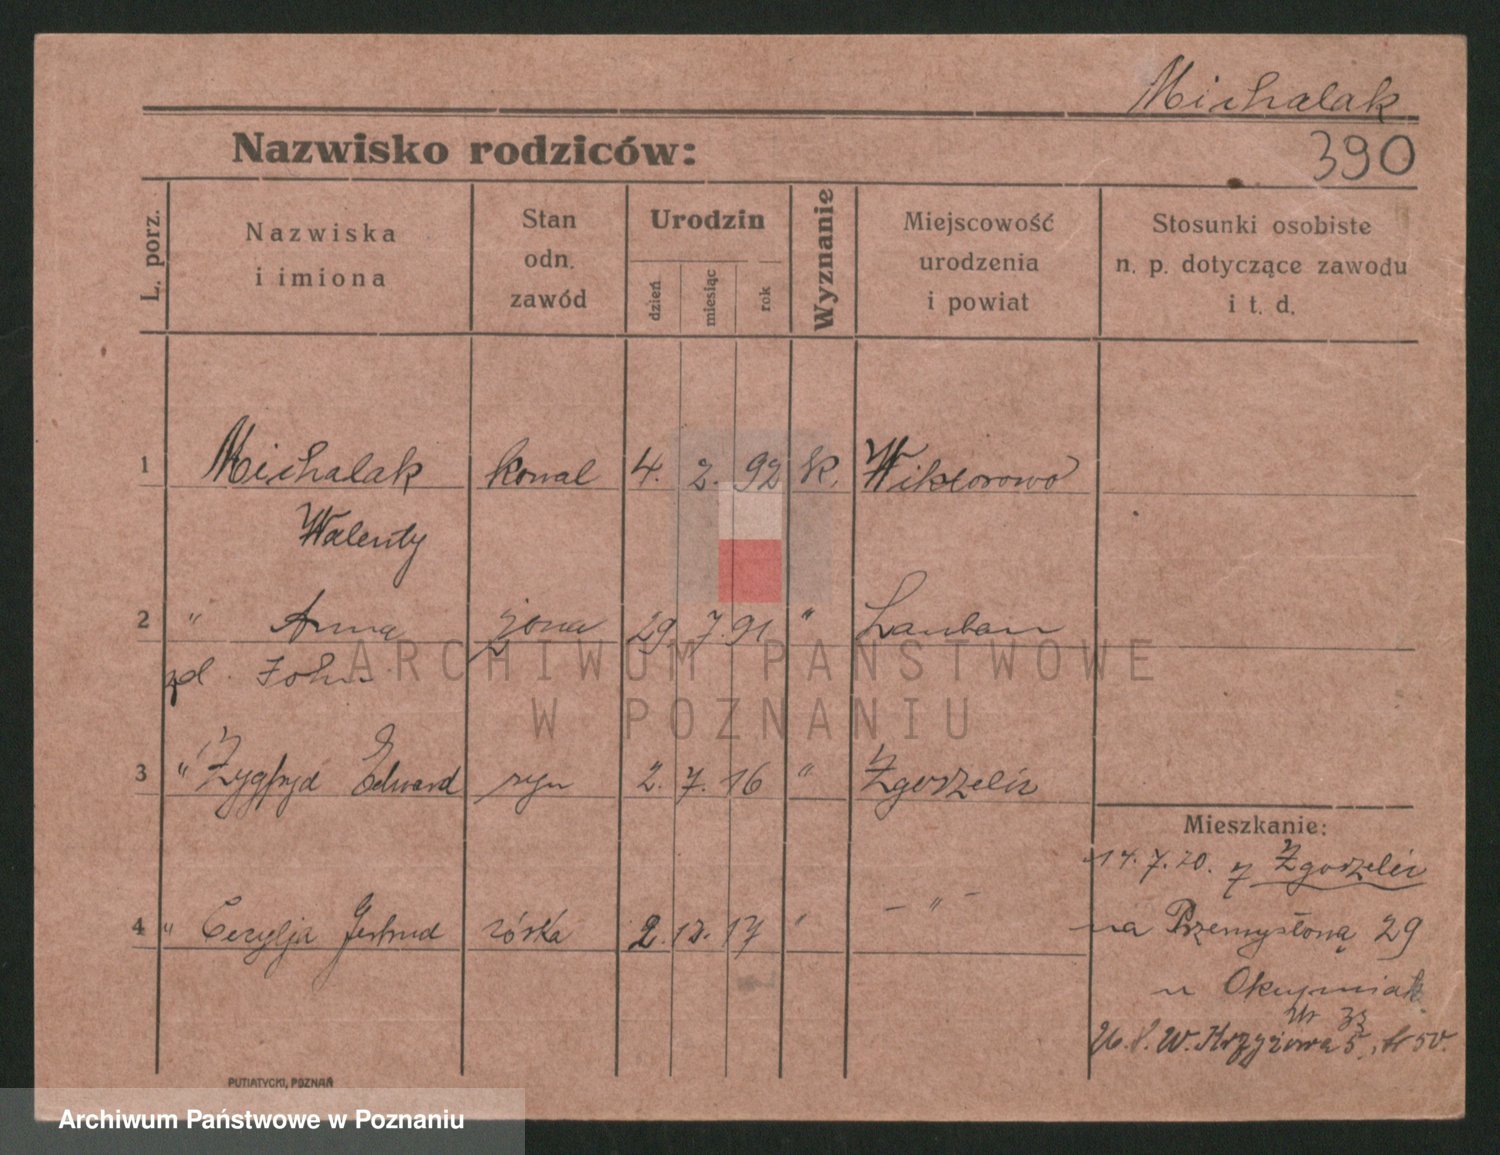 Michalak
390
Nazwisko rodziców:
L. porz.
Nazwiska
i imiona
Stan
odn.
zawód
Urodzin
dzień
miesiąc
rok
Wyznanie
Miejscowość
urodzenia
i powiat
Stosunki osobiste
n. p. dotyczące zawodu
i t. d.
1 Michalak kowal 4. 2. 92 k. Wiktorowo
Walenty
2 " Anna żona 29 7. 91 " Lauban
zd. John
3 " Zygfryd Edward syn 2. 7. 16 " Zgorzelic
Mieszkanie:
14. 7. 20. z Zgorzelic
4 " Cecylja Gertrud córka 2. 12. 17 " - " -
na Przemysłową 29
u
W. Krzyżowa 5,
PUTIATYCKI, POZNAŃ
ARCHIWUM PAŃSTWOWE
W POZNANIU
Archiwum Państwowe w Poznaniu